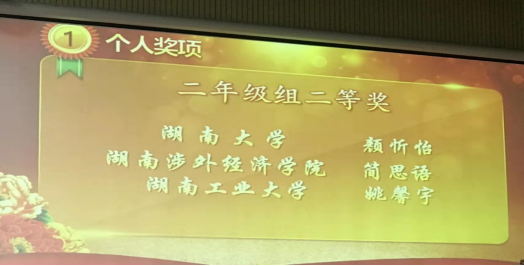 1
个人奖项
二年级组二等奖
湖南大学 颜忻怡
湖南涉外经济学院 简思语
湖南工业大学 姚馨宇